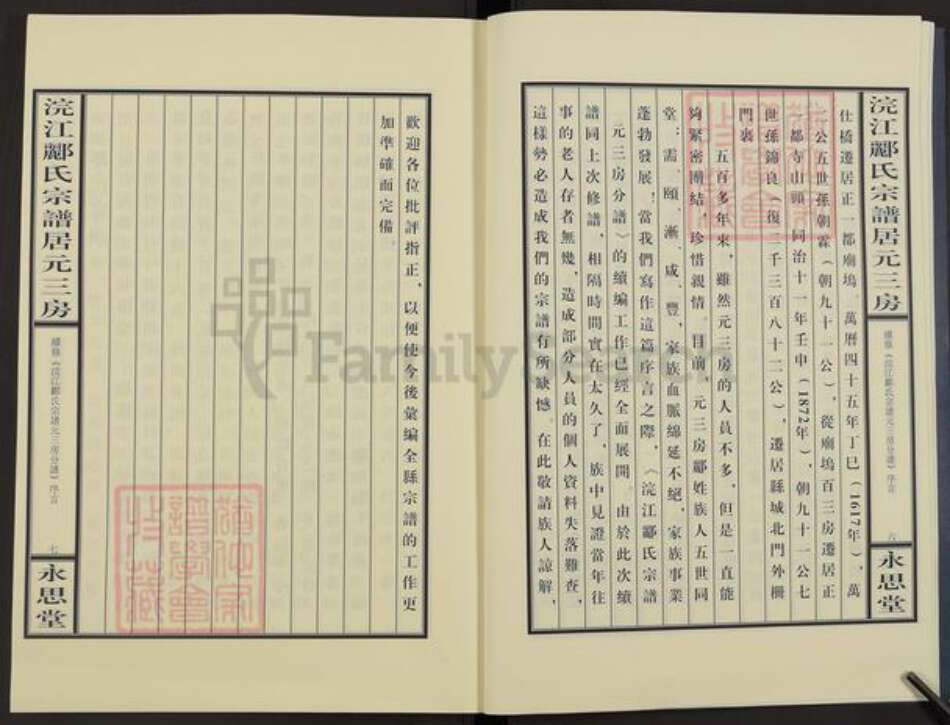 浣江酈氏宗譜居元三房
續修《浣江酈氏宗譜元三房分譜》序言
八
永思堂
仕橋遷居正一都廟塢。萬曆四十五年丁巳(1617年),萬
公五世孫朝霖(朝九十一公),從廟塢百三房遷居正
一都寺山頭。同治十一年壬申(1872年),朝九十一公七
世孫錦良(復二千三百八十二公),遷居縣城北門外柵
門裏。
五百多年來,雖然元三房的人員不多,但是一直能
夠緊密團結,珍惜親情。目前,元三房酈姓族人五世同
堂;需、頤、漸、咸、豐,家族血脈綿延不絕,家族事業
蓬勃發展;當我們寫作這篇序言之際,《浣江酈氏宗譜
元三房分譜》的續編工作已經全面展開。由於此次續
譜同上次修譜,相隔時間實在太久了,族中見證當年往
事的老人存者無幾,造成部分人員的個人資料失落難查,
這樣勢必造成我們的宗譜有所缺憾。在此敬請族人諒解,
歡迎各位批評指正,以便使今後彙編全縣宗譜的工作更
加準確而完備。
浣江酈氏宗譜居元三房
續修《浣江酈氏宗譜元三房分譜》序言
七
永思堂
FamilySearch